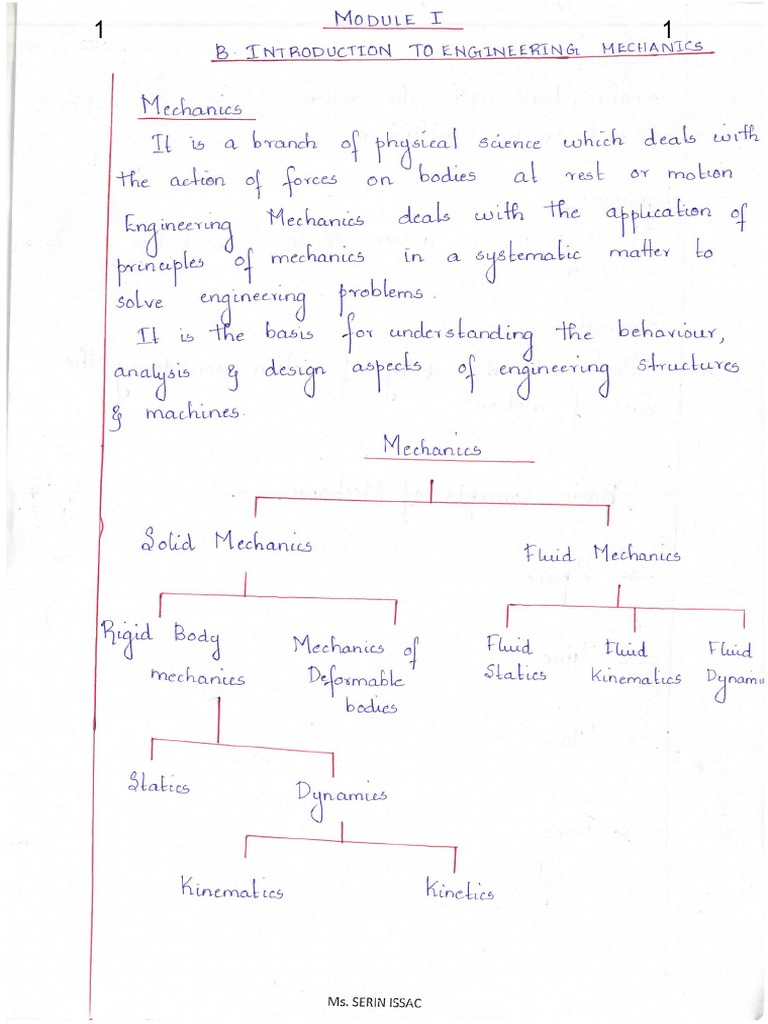 1
MODULE I
1
B. INTRODUCTION TO ENGINEERING MECHANICS
Mechanics
It is a branch of physical science which deals with
the action of forces on bodies at rest or motion
Engineering Mechanics deals with the application of
principles of mechanics in a systematic matter to
solve engineering problems.
It is the basis for understanding the behaviour,
analysis & design aspects of engineering structures
& machines.
Mechanics
Solid Mechanics
Fluid Mechanics
Rigid Body
mechanics
Mechanics of
Deformable
bodies
Fluid
Statics
Fluid
Kinematics
Fluid
Dynami
Statics
Dynamics
Kinematics
Kinetics
Ms. SERIN ISSAC